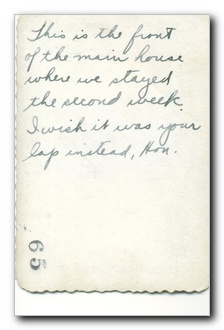 This is the front
of the main house
where we stayed
the second week.
I wish it was your
lap instead, Hon.
65